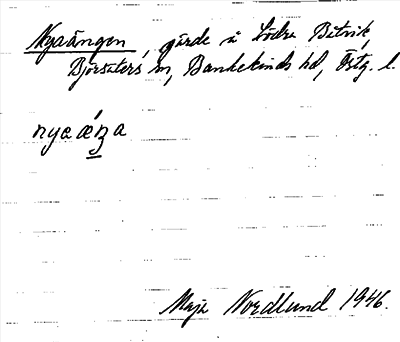 Nyaängen, gärde å Södra Bitvik,
Björsäters sn, Bankekinds hd, Östg. l.
nyaæ̀ŋa
Maja Nordlund 1946.